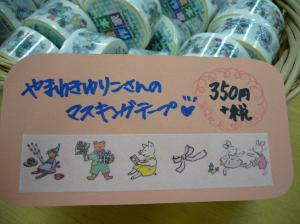 やまわきゆりこさんの
マスキングテープ♡
350円
+税